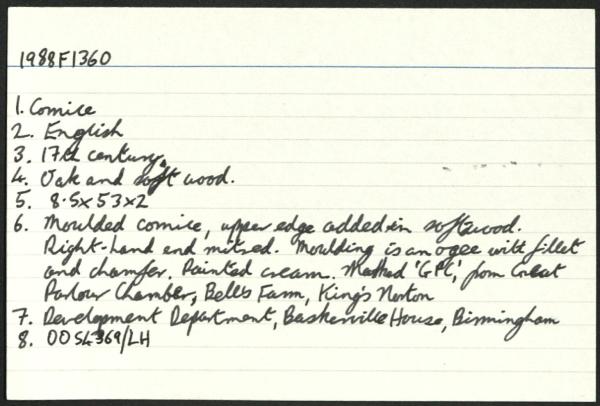 1988F1360
1. Cornice
2. English
3. 17th century.
4. Oak and soft wood.
5. 8.5x53x2
6. Moulded cornice, upper edge added in softwood.
Right-hand end mitred. Moulding is an ogee with fillet
and chamfer. Painted cream. Marked 'GPC', from Great
Parlour Chamber, Bell's Farm, King's Norton
7. Development Department, Baskerville House, Birmingham
8. OOSL369/LH